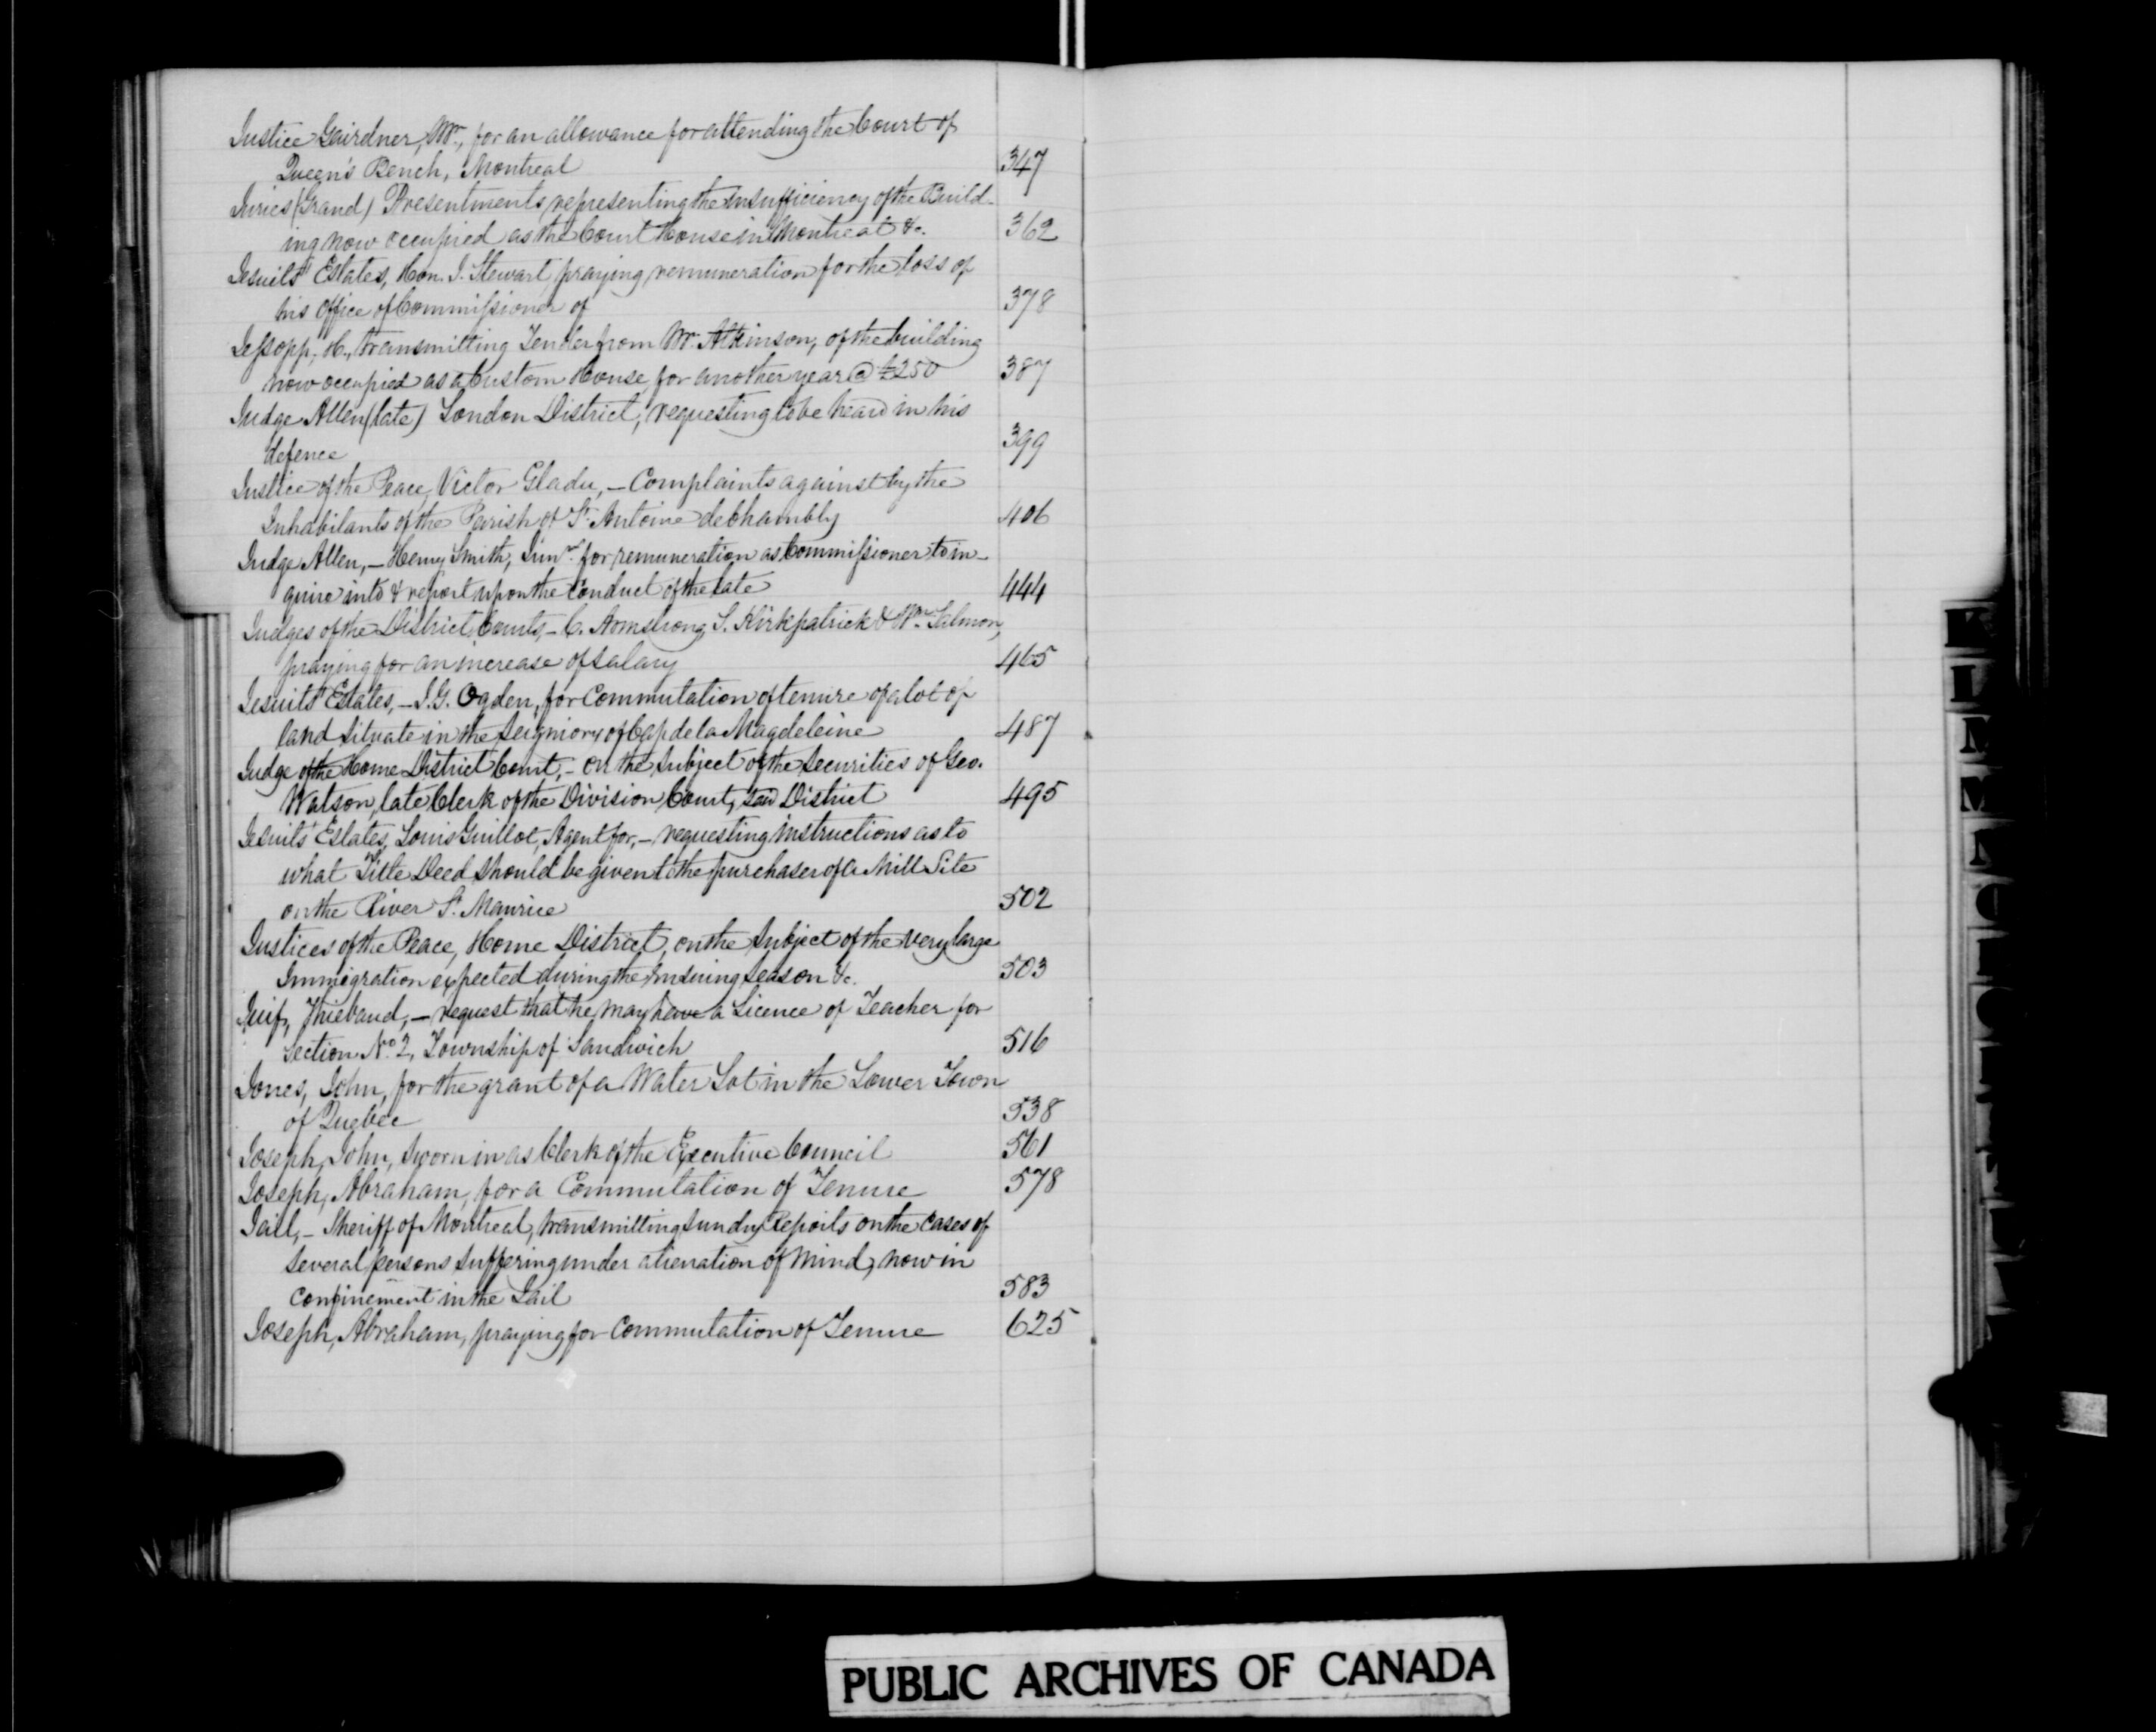 Justice Gairdner, Mr., for an allowance for attending the Court of
Queen's Bench, Montreal 347
Juries (Grand) Presentments representing the insufficiency of the Build-
ing now occupied as the Court House in Montreal &c. 362
Jesuits' Estates, Hon. J. Stewart, praying remuneration for the loss of
his Office of Commissioner of 378
Jessopp, H., transmitting Tender from Mr. Atkinson, of the building
now occupied as a Custom House, for another year @ £250 387
Judge Allen (late) London District, requesting to be heard in his
defence 399
Justice of the Peace, Victor Gladu, - Complaints against by the
Inhabitants of the Parish of St. Antoine de Chambly 406
Judge Allen, - Henry Smith, Junr. for remuneration as Commissioner to in-
quire into & report upon the conduct of the late 444
Judges of the District Courts, - C. Armstrong, S. Kirkpatrick & Wm. Salmon,
praying for an increase of salary 465
Jesuits' Estates, - I.G. Ogden, for Commutation of tenure of a lot of
land situate in the Seigniory of Cap de la Magdeleine 487
Judge of the Home District Court, - on the subject of the Securities of Geo.
Watson, late Clerk of the Division Court, said District 495
Jesuits' Estates, Louis Guillot, Agent for, - requesting instructions as to
what Title Deed should be given to the purchaser of a Mill Site
on the River St. Maurice 502
Justices of the Peace, Home District, on the subject of the very large
Immigration expected during the ensuing season &c. 503
Juif, Thiebaud, - request that he may have a Licence of Teacher for
Section No. 2, Township of Sandwich 516
Jones, John, for the grant of a Water Lot in the Lower Town
of Quebec 538
Joseph, John, sworn in as Clerk of the Executive Council 561
Joseph, Abraham, for a Commutation of Tenure 578
Jail, - Sheriff of Montreal, transmitting sundry Reports on the cases of
several persons suffering under alienation of mind, now in
confinement in the Jail 583
Joseph, Abraham, praying for Commutation of Tenure 625
PUBLIC ARCHIVES OF CANADA